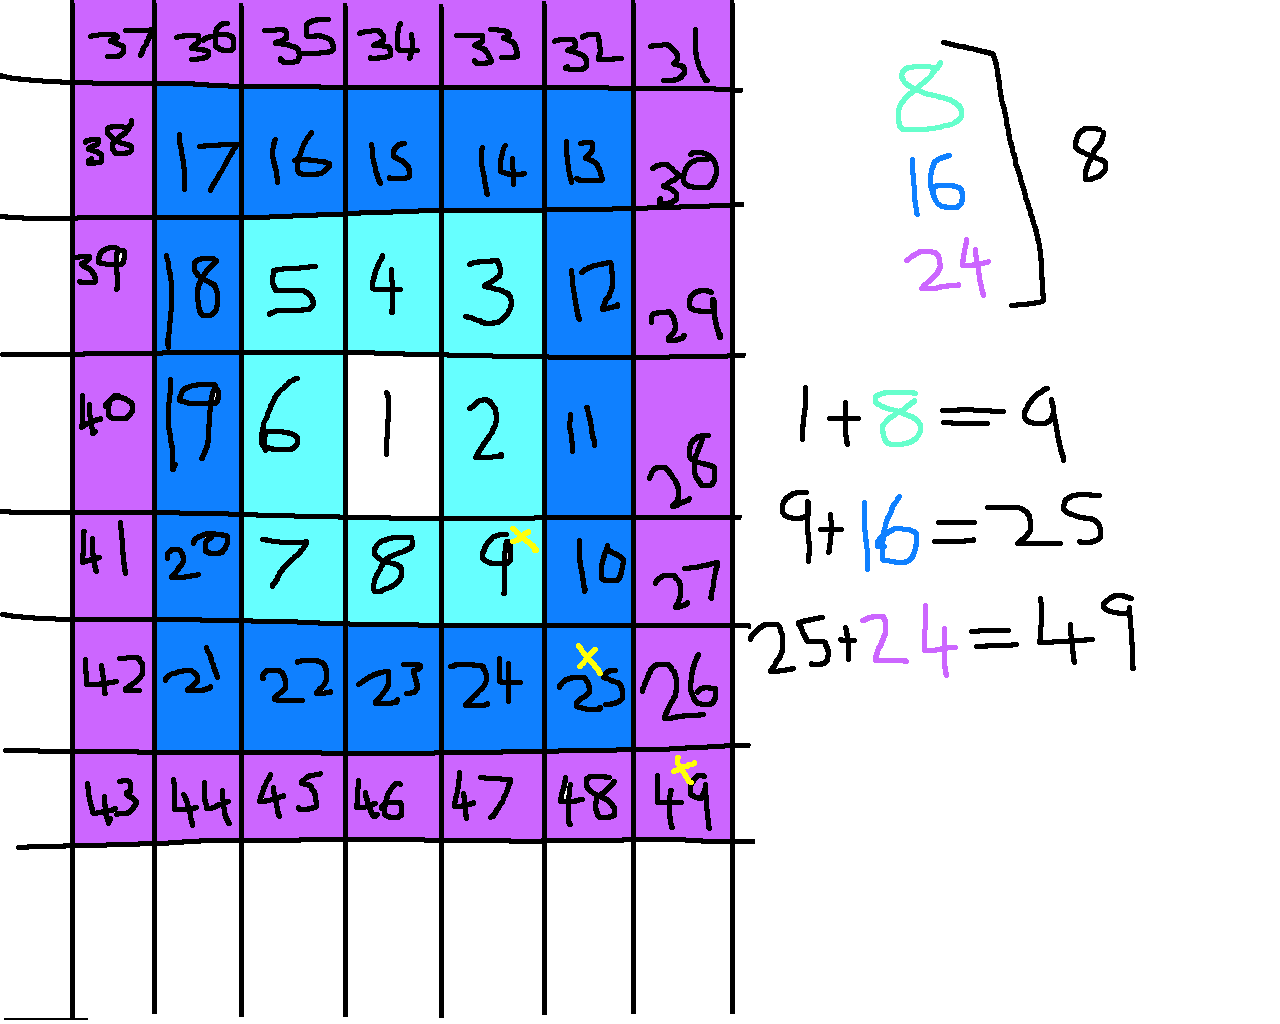 37 36 35 34 33 32 31
38 17 16 15 14 13 30
39 18 5 4 3 12 29
40 19 6 1 2 11 28
41 20 7 8 9 x 10 27
42 21 22 23 24 x 25 26
43 44 45 46 47 48 x 49
8
16
24
8
1+8=9
9+16=25
25+24=49